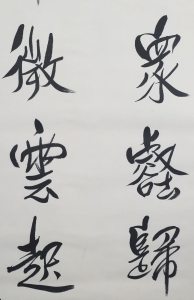 众壑歸
微雲起